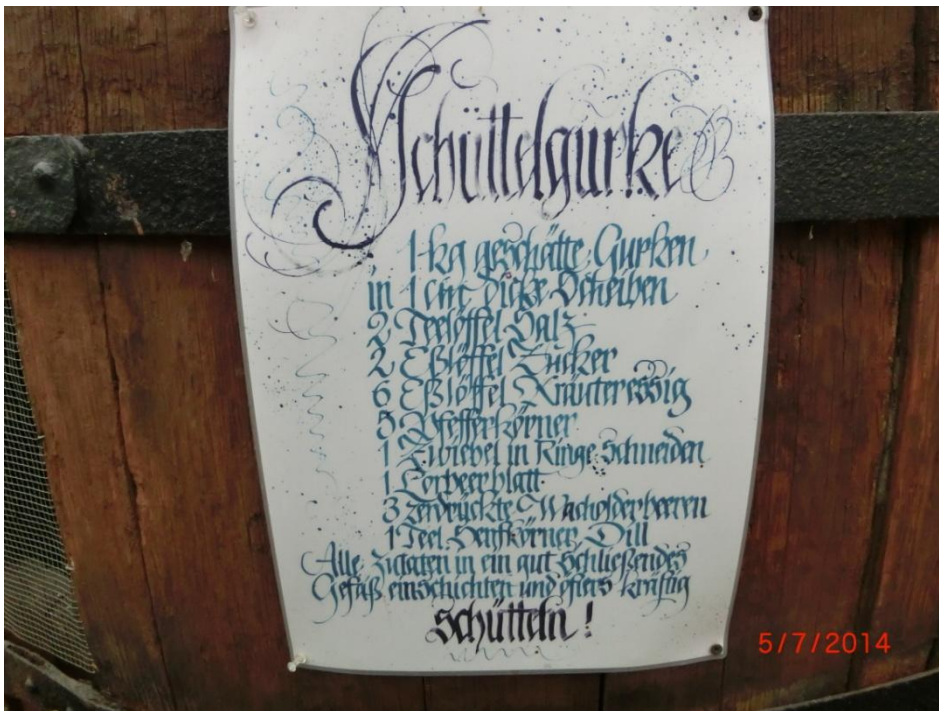 Schüttelgurke
1 kg geschätte Gurken
in 1 cm dicke Scheiben
2 Teelöffel Salz
2 Eßlöffel Zucker
6 Eßlöffel Kräuteressig
5 Pfefferkörner
1 Zwiebel in Ringe Schneiden
1 Lorbeerblatt
3 zerdrückte Wacholderbeeren
1 Teel. Senfkörner, Dill
Alle Zutaten in ein gut Schließendes
Gefäß einschichten und öfters kräftig
schütteln!
5/7/2014